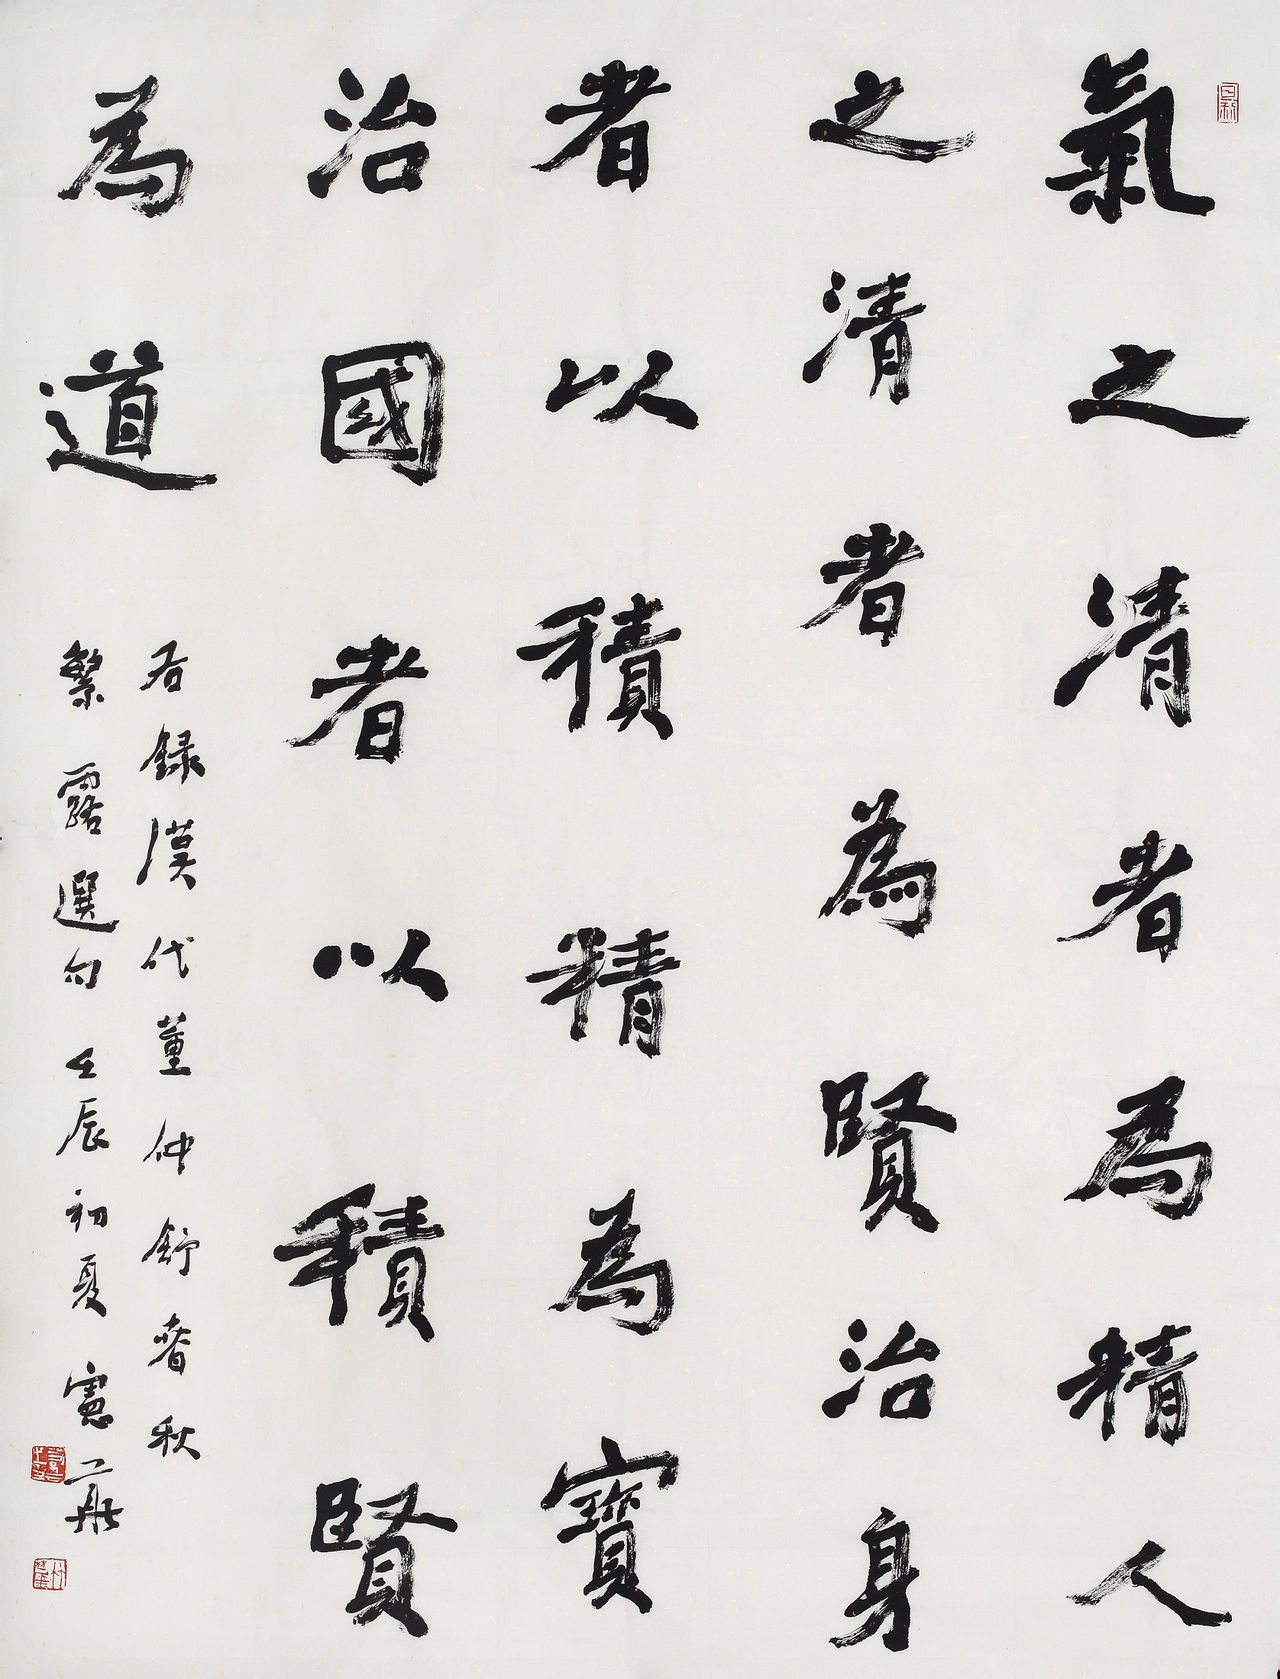 氣之清者為精人
之清者為賢治身
者以積精為寶
治國者以積賢
為道
右錄漢代董仲舒春秋
繁露選句 壬辰初夏 憲
日新